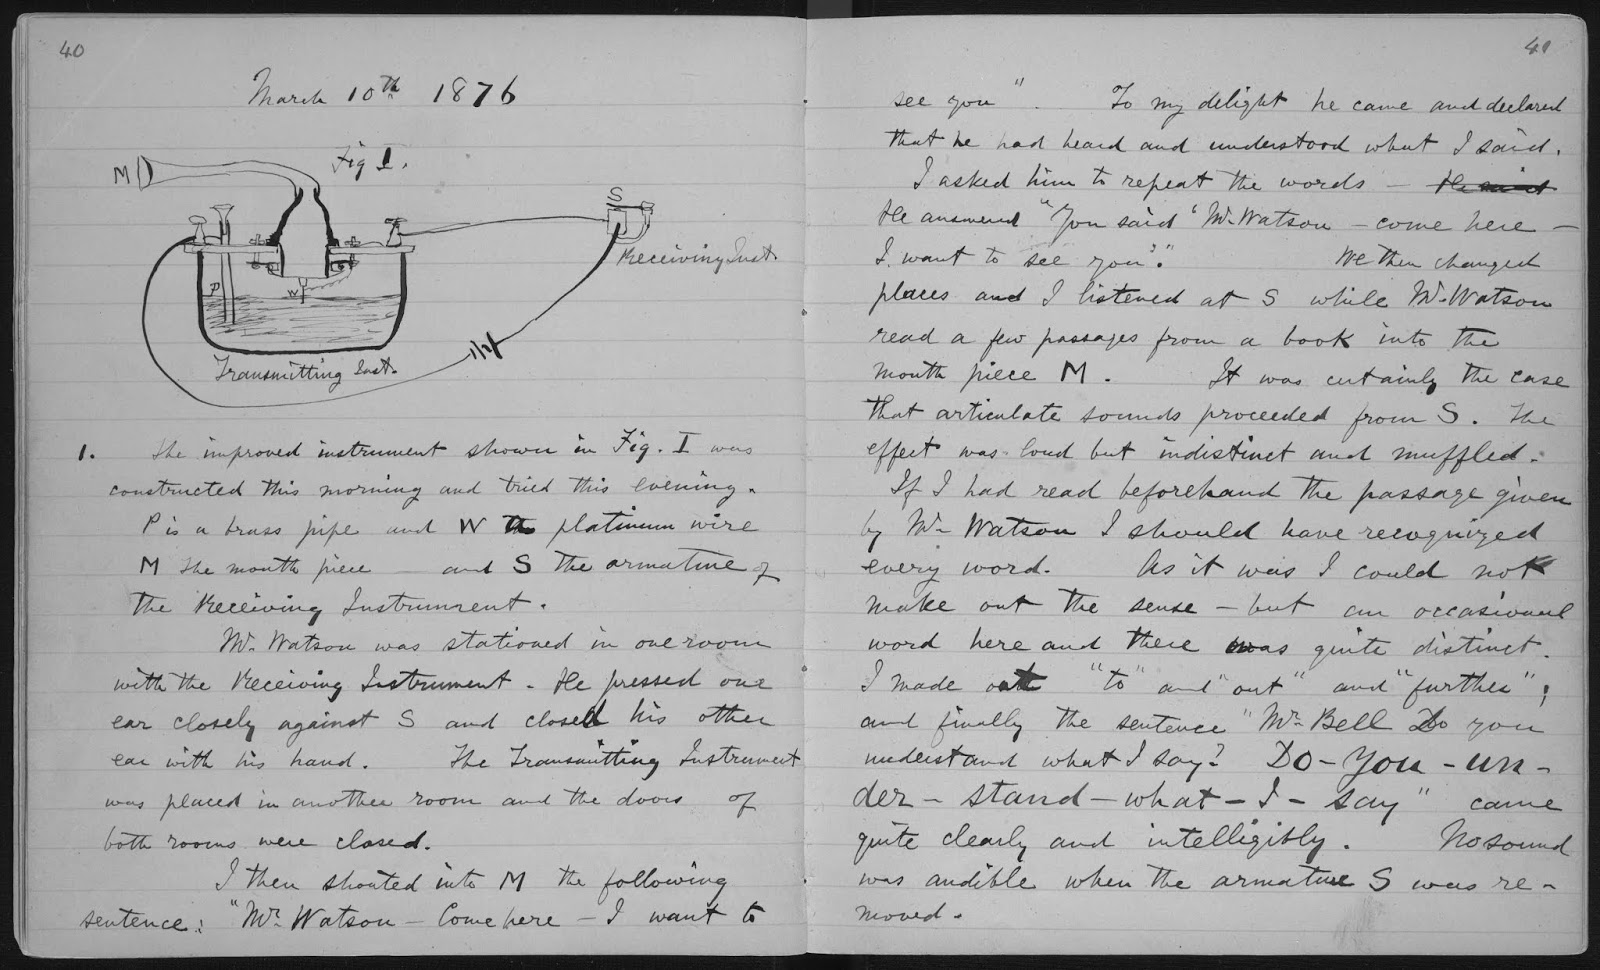 40
March 10th 1876
Fig I.
M
S
Receiving Inst.
P
W
Transmitting Inst.
1. The improved instrument shown in Fig. I was
constructed this morning and tried this evening.
P is a brass pipe and W the platinum wire
M the mouth piece and S the armature of
the Receiving Instrument.
Mr. Watson was stationed in one room
with the Receiving Instrument. He pressed one
ear closely against S and closed his other
ear with his hand. The Transmitting Instrument
was placed in another room and the doors of
both rooms were closed.
I then shouted into M the following
sentence: "Mr. Watson — Come here — I want to
41
see you". To my delight he came and declared
that he had heard and understood what I said.
I asked him to repeat the words — He said
He answered "You said 'Mr. Watson — come here —
I want to see you'." We then changed
places and I listened at S while Mr. Watson
read a few passages from a book into the
mouth piece M. It was certainly the case
that articulate sounds proceeded from S. The
effect was loud but indistinct and muffled.
If I had read beforehand the passage given
by Mr. Watson I should have recognized
every word. As it was I could not
make out the sense — but an occasional
word here and there was quite distinct.
I made out "to" and "out" and "further";
and finally the sentence "Mr. Bell Do you
understand what I say? Do-you-un-
der-stand-what-I-say" came
quite clearly and intelligibly. No sound
was audible when the armature S was re-
moved.